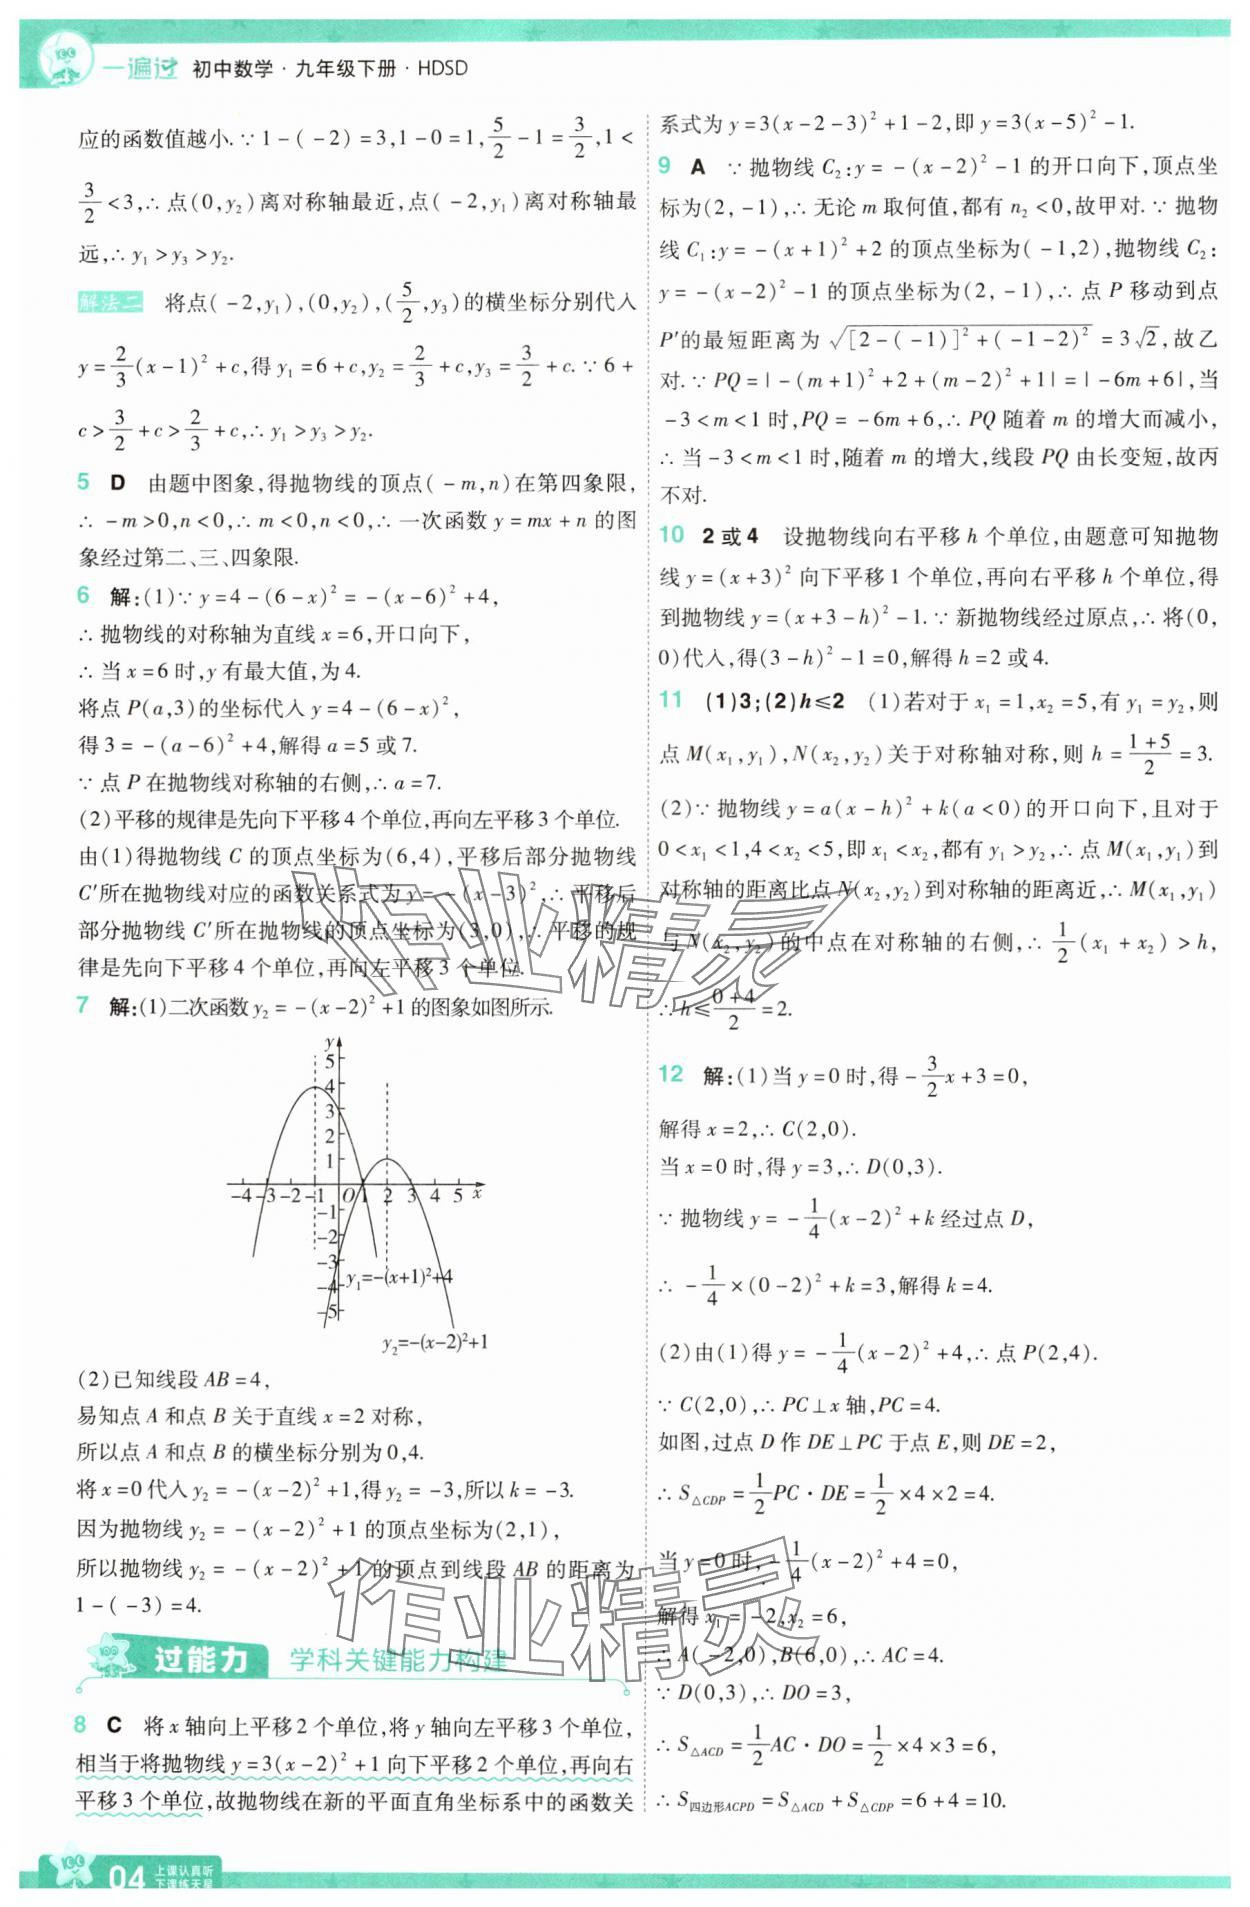 一遍过 初中数学·九年级下册·HDSD
应的函数值越小.∵1-(-2)=3,1-0=1,5/2-1=3/2,1<
3/2<3,∴点(0,y₂)离对称轴最近,点(-2,y₁)离对称轴最
远,∴y₁>y₃>y₂.
解法二 将点(-2,y₁),(0,y₂),(5/2,y₃)的横坐标分别代入
y=2/3(x-1)²+c,得y₁=6+c,y₂=2/3+c,y₃=3/2+c.∵6+
c>3/2+c>2/3+c,∴y₁>y₃>y₂.
5 D 由题中图象,得抛物线的顶点(-m,n)在第四象限,
∴-m>0,n<0,∴m<0,n<0,∴一次函数y=mx+n的图
象经过第二、三、四象限.
6 解:(1)∵y=4-(6-x)²=-(x-6)²+4,
∴抛物线的对称轴为直线x=6,开口向下,
∴当x=6时,y有最大值,为4.
将点P(a,3)的坐标代入y=4-(6-x)²,
得3=-(a-6)²+4,解得a=5或7.
∵点P在抛物线对称轴的右侧,∴a=7.
(2)平移的规律是先向下平移4个单位,再向左平移3个单位.
由(1)得抛物线C的顶点坐标为(6,4),平移后部分抛物线
C'所在抛物线对应的函数关系式为y=-(x-3)²,∴平移后
部分抛物线C'所在抛物线的顶点坐标为(3,0),∴平移的规
律是先向下平移4个单位,再向左平移3个单位.
7 解:(1)二次函数y₂=-(x-2)²+1的图象如图所示.
y
5
4
3
2
1
-4 -3 -2 -1 O 1 2 3 4 5 x
-1
-2
-3
-4
-5
y₁=-(x+1)²+4
y₂=-(x-2)²+1
(2)已知线段AB=4,
易知点A和点B关于直线x=2对称,
所以点A和点B的横坐标分别为0,4.
将x=0代入y₂=-(x-2)²+1,得y₂=-3,所以k=-3.
因为抛物线y₂=-(x-2)²+1的顶点坐标为(2,1),
所以抛物线y₂=-(x-2)²+1的顶点到线段AB的距离为
1-(-3)=4.
过能力 学科关键能力构建
8 C 将x轴向上平移2个单位,将y轴向左平移3个单位,
相当于将抛物线y=3(x-2)²+1向下平移2个单位,再向右
平移3个单位,故抛物线在新的平面直角坐标系中的函数关
系式为y=3(x-2-3)²+1-2,即y=3(x-5)²-1.
9 A ∵抛物线C₂:y=-(x-2)²-1的开口向下,顶点坐
标为(2,-1),∴无论m取何值,都有n₂<0,故甲对.∵抛物
线C₁:y=-(x+1)²+2的顶点坐标为(-1,2),抛物线C₂:
y=-(x-2)²-1的顶点坐标为(2,-1),∴点P移动到点
P'的最短距离为√([2-(-1)]²+(-1-2)²)=3√2,故乙
对.∵PQ=|-(m+1)²+2+(m-2)²+1|=|-6m+6|,当
-3<m<1时,PQ=-6m+6,∴PQ随着m的增大而减小,
∴当-3<m<1时,随着m的增大,线段PQ由长变短,故丙
不对.
10 2或4 设抛物线向右平移h个单位,由题意可知抛物
线y=(x+3)²向下平移1个单位,再向右平移h个单位,得
到抛物线y=(x+3-h)²-1.∵新抛物线经过原点,∴将(0,
0)代入,得(3-h)²-1=0,解得h=2或4.
11 (1)3;(2)h≤2 (1)若对于x₁=1,x₂=5,有y₁=y₂,则
点M(x₁,y₁),N(x₂,y₂)关于对称轴对称,则h=(1+5)/2=3.
(2)∵抛物线y=a(x-h)²+k(a<0)的开口向下,且对于
0<x₁<1,4<x₂<5,即x₁<x₂,都有y₁>y₂,∴点M(x₁,y₁)到
对称轴的距离比点N(x₂,y₂)到对称轴的距离近,∴M(x₁,y₁)
与N(x₂,y₂)的中点在对称轴的右侧,∴1/2(x₁+x₂)>h,
∴h≤(0+4)/2=2.
12 解:(1)当y=0时,得-3/2x+3=0,
解得x=2,∴C(2,0).
当x=0时,得y=3,∴D(0,3).
∵抛物线y=-1/4(x-2)²+k经过点D,
∴-1/4×(0-2)²+k=3,解得k=4.
(2)由(1)得y=-1/4(x-2)²+4,∴点P(2,4).
∵C(2,0),∴PC⊥x轴,PC=4.
如图,过点D作DE⊥PC于点E,则DE=2,
∴S△CDP=1/2PC·DE=1/2×4×2=4.
当y=0时,-1/4(x-2)²+4=0,
解得x₁=-2,x₂=6,
∴A(-2,0),B(6,0),∴AC=4.
∵D(0,3),∴DO=3,
∴S△ACD=1/2AC·DO=1/2×4×3=6,
∴S四边形ACPD=S△ACD+S△CDP=6+4=10.
作业精灵
作业精灵
04 上课认真听
下课练天星